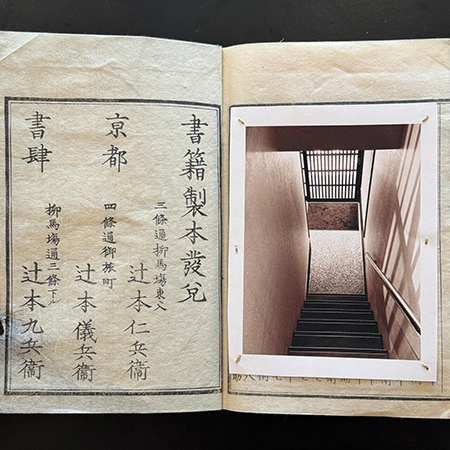 書籍製本發兌
三條通柳馬塲東入
辻本仁兵衞
京都
四條通御旅町
辻本儀兵衞
書肆
柳馬塲通三條下ル
辻本九兵衞